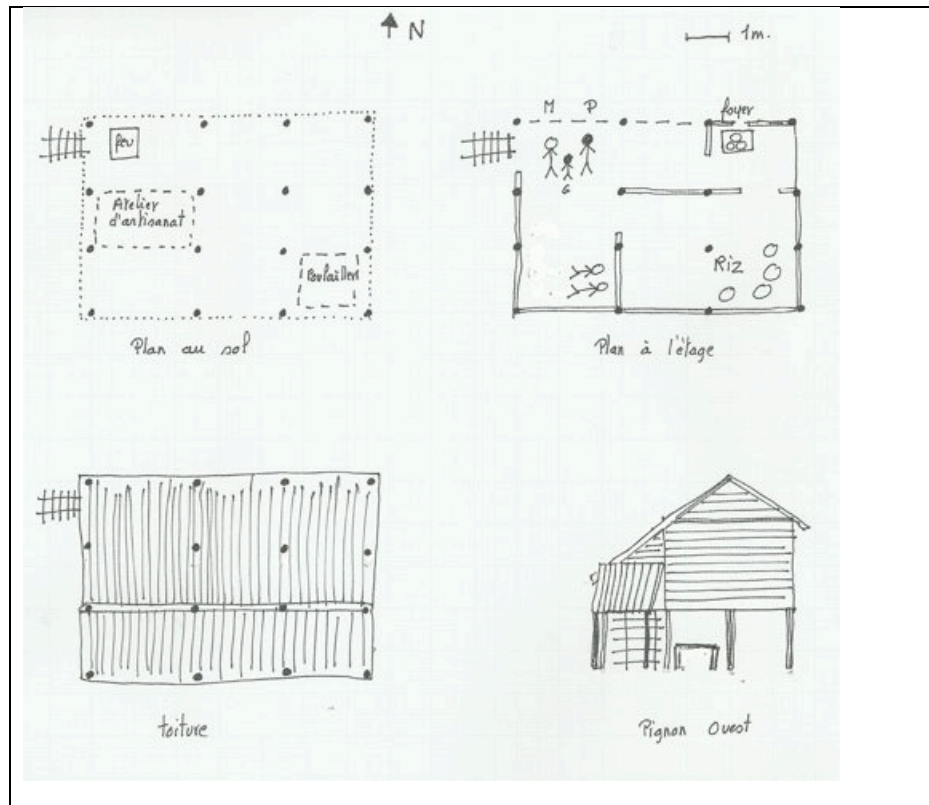 N
1m.
feu
Atelier
d'artisanat
Poulailler
Plan au sol
M P
foyer
G
Riz
Plan à l'étage
toiture
Pignon Ouest